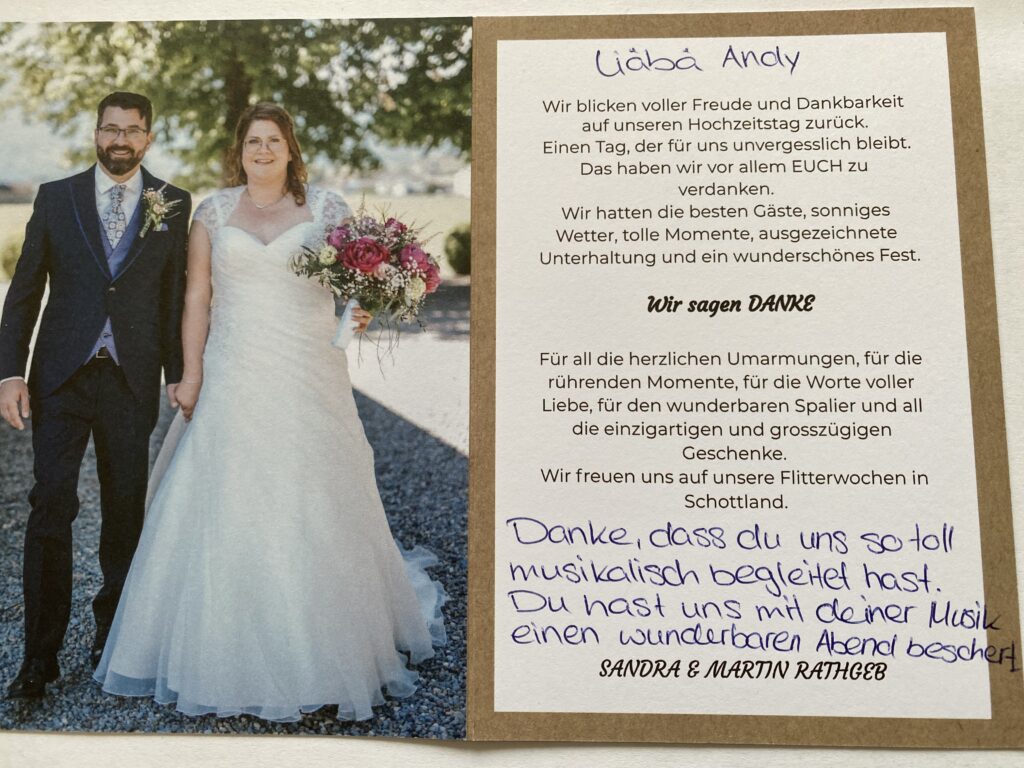 Liäbä Andy
Wir blicken voller Freude und Dankbarkeit
auf unseren Hochzeitstag zurück.
Einen Tag, der für uns unvergesslich bleibt.
Das haben wir vor allem EUCH zu
verdanken.
Wir hatten die besten Gäste, sonniges
Wetter, tolle Momente, ausgezeichnete
Unterhaltung und ein wunderschönes Fest.
Wir sagen DANKE
Für all die herzlichen Umarmungen, für die
rührenden Momente, für die Worte voller
Liebe, für den wunderbaren Spalier und all
die einzigartigen und grosszügigen
Geschenke.
Wir freuen uns auf unsere Flitterwochen in
Schottland.
Danke, dass du uns so toll
musikalisch begleitet hast.
Du hast uns mit deiner Musik
einen wunderbaren Abend beschert
SANDRA & MARTIN RATHGEB